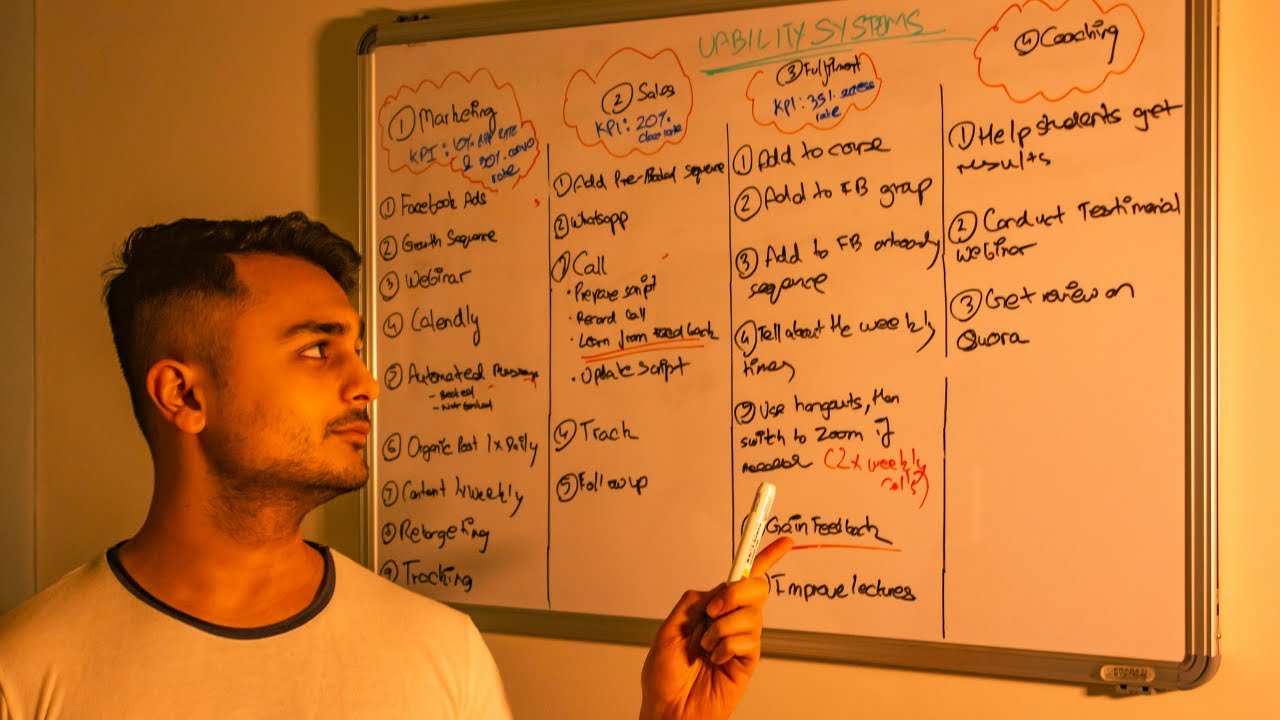 UPBILITY SYSTEMS
① Marketing
KPI: 10% APP RATE
& 30% CONVO
rate
① Facebook Ads
② Growth Sequence
③ Webinar
④ Calendly
⑤ Automated Message
- Booked
- Not Booked
⑥ Organic Post 1x Daily
⑦ Content 4 weekly
⑧ Retargeting
⑨ Tracking
② Sales
KPI: 20%
Close rate
① Add Pre-Booked Sequence
② Whatsapp
③ Call
• Prepare script
• Record Call
• Learn from Feedback
• Update Script
④ Track
⑤ Follow up
③ Fulfilment
KPI: 35% success
rate
① Add to corse
② Add to FB group
③ Add to FB onboardy
sequence
④ Tell about the weekly
times
⑤ Use hangouts, then
switch to Zoom if
needed (2x weekly
calls)
Gain Feedback
Improve lectures
④ Coaching
① Help students get
results
② Conduct Testimonial
webinar
③ Get review on
Quora